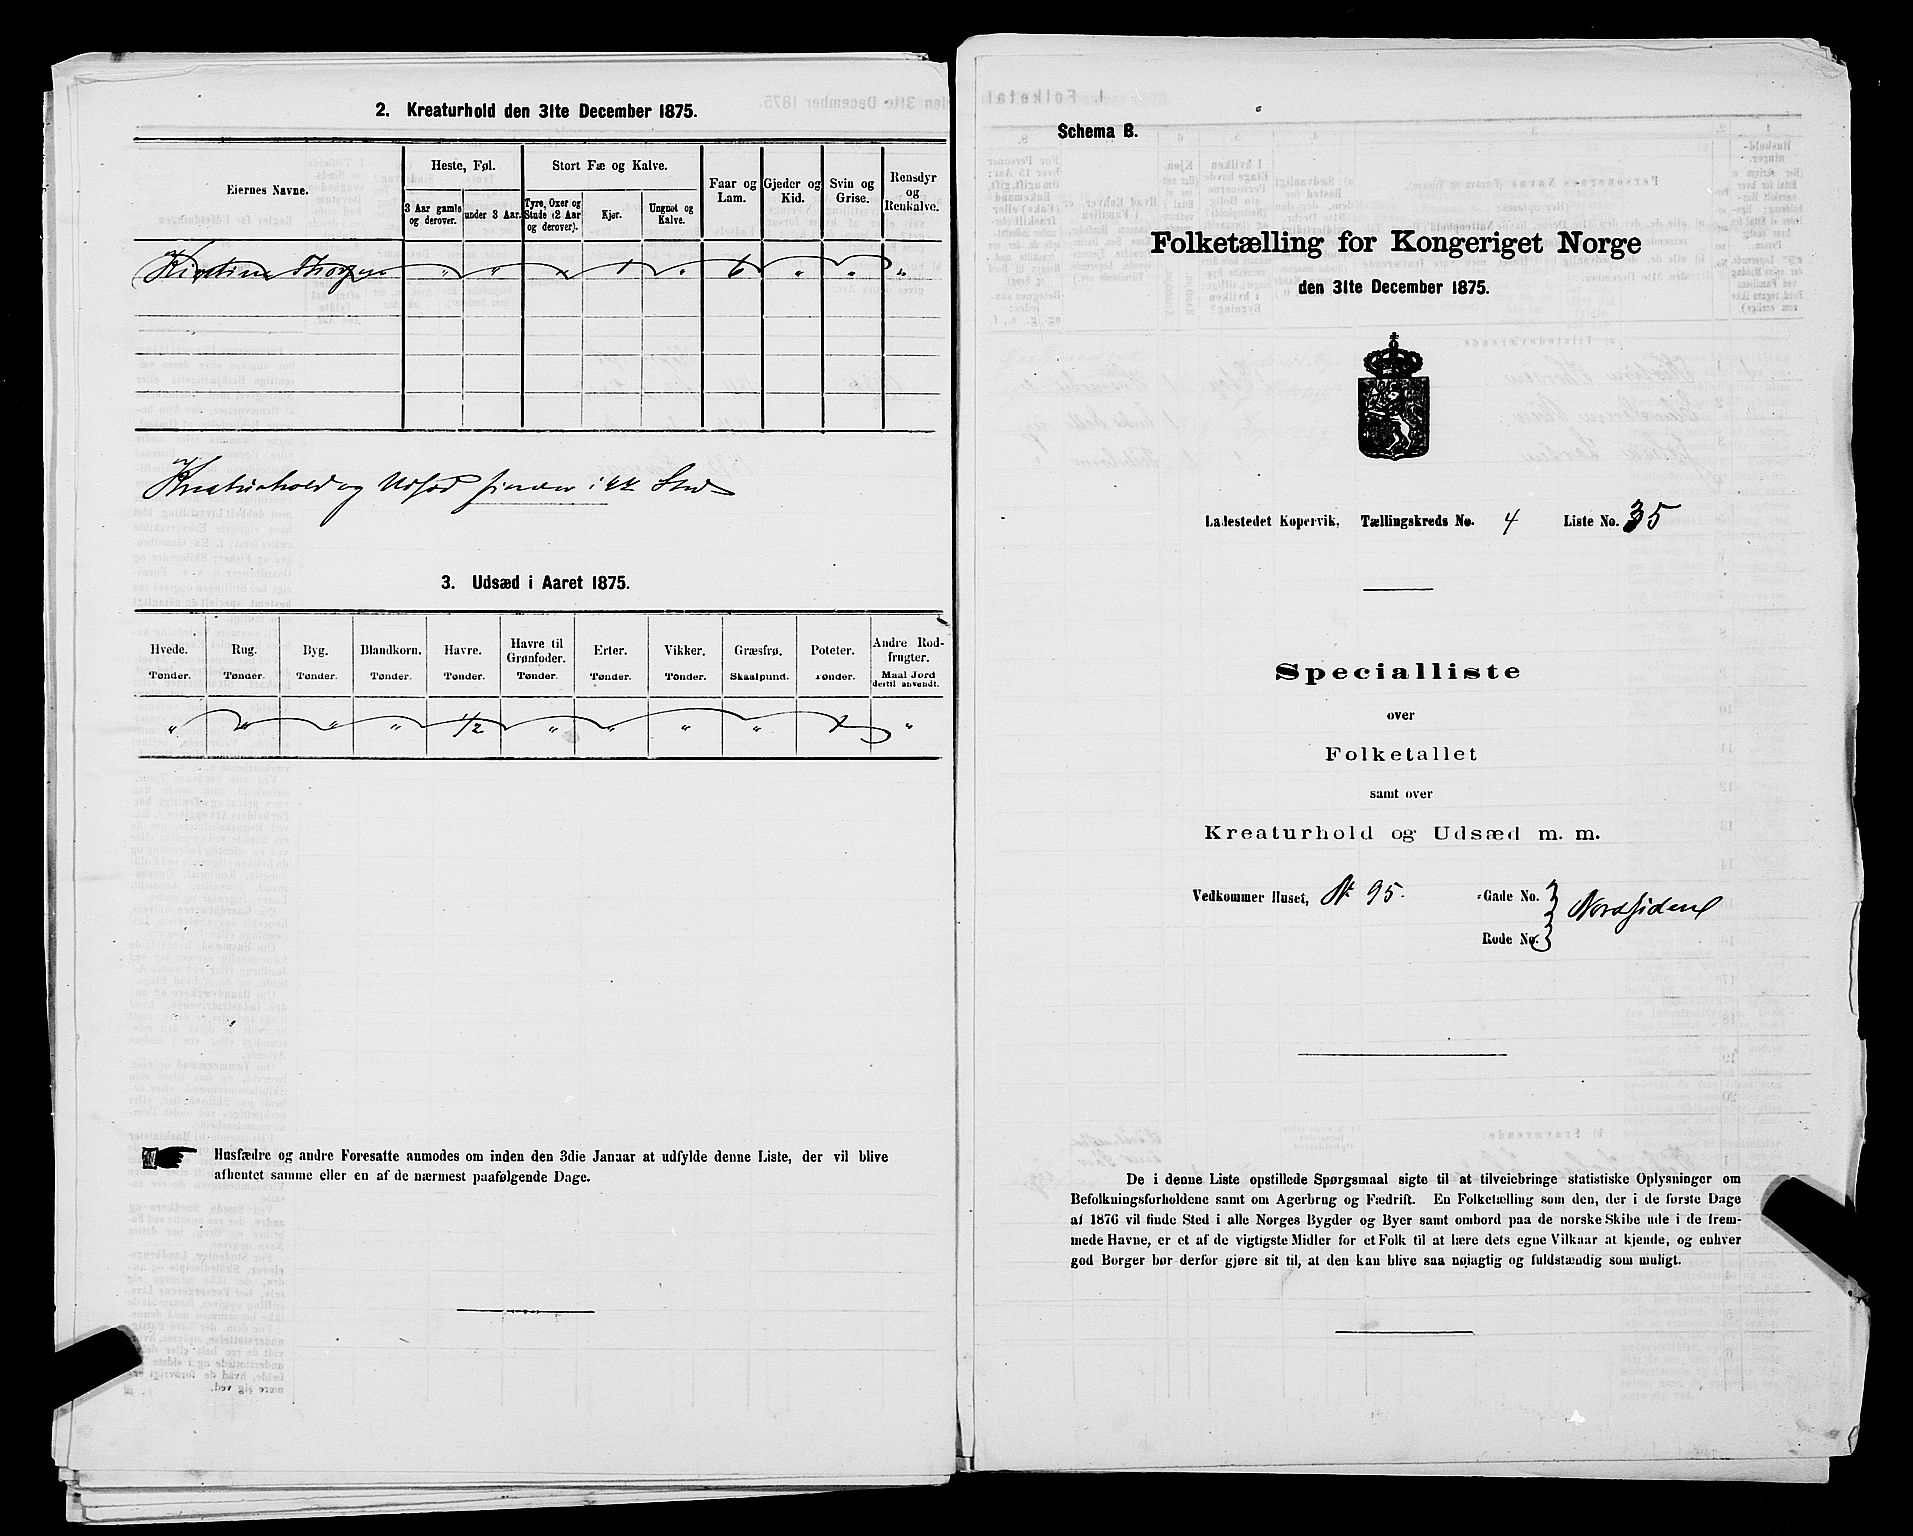 2. Kreaturhold den 31te December 1875.
Eiernes Navne.
Heste, Føl.
Stort Fæ og Kalve.
Faar og Lam.
Gjeder og Kid.
Svin og Grise.
Rensdyr og Renkalve.
3 Aar gamle og derover.
under 3 Aar.
Tyre, Oxer og Stude (2 Aar og derover).
Kjør.
Ungnøt og Kalve.
Kirstine " " " 1 " 6 " " "
Kreaturhold og Udsæd finder ikke Sted
3. Udsæd i Aaret 1875.
Hvede. Rug. Byg. Blandkorn. Havre. Havre til Grønfoder. Erter. Vikker. Græsfrø. Poteter. Andre Rodfrugter.
Tønder. Tønder. Tønder. Tønder. Tønder. Tønder. Tønder. Tønder. Skaalpund. Tønder. Maal Jord dertil anvendt.
" " " " 1/2 " " " " "
Husfædre og andre Foresatte anmodes om inden den 3die Januar at udfylde denne Liste, der vil blive
afhentet samme eller en af de nærmest paafølgende Dage.
Schema B.
Folketælling for Kongeriget Norge
den 31te December 1875.
Ladestedet Kopervik, Tællingskreds No. 4 Liste No. 35
Specialliste
over
Folketallet
samt over
Kreaturhold og Udsæd m. m.
Vedkommer Huset, No 95. Gade No. Nordsiden
Rode No.
De i denne Liste opstillede Spørgsmaal sigte til at tilveiebringe statistiske Oplysninger om
Befolkningsforholdene samt om Agerbrug og Fædrift. En Folketælling som den, der i de første Dage
af 1876 vil finde Sted i alle Norges Bygder og Byer samt ombord paa de norske Skibe ude i de frem-
mede Havne, er et af de vigtigste Midler for et Folk til at lære dets egne Vilkaar at kjende, og enhver
god Borger bør derfor gjøre sit til, at den kan blive saa nøiagtig og fuldstændig som muligt.